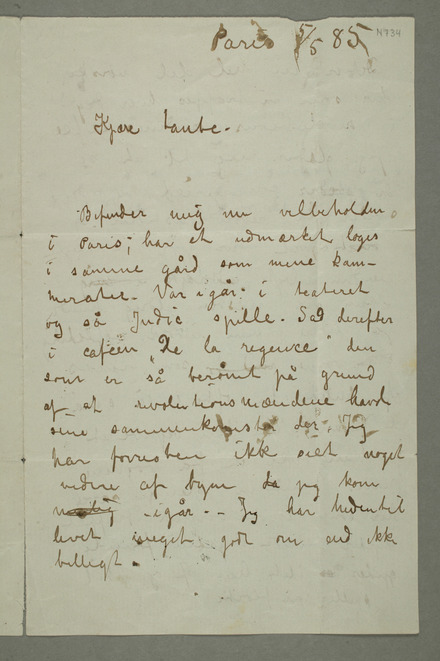 Paris 5/5 85
N734
Kjære tante.
Befinder mig nu velbeholden
i Paris; har et udmærket logis
i samme gård som mine kam-
merater. Var igår i teateret
og så Judic spille. Sad derefter
i cafeen „De la regence" den
som er så berømt på grund
af at revolutionsmændene havde
sine sammenkomster der. Jeg
har forresten ikke seet noget
videre af byen da jeg kom
igår. - Jeg har hidentil
levet meget godt om end ikke
billigt.